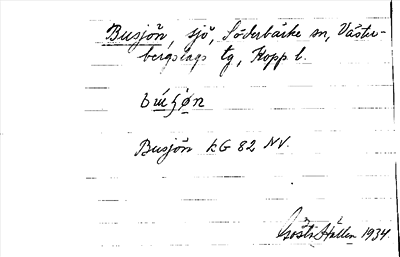 Busjön, sjö, Söderbärke sn, Väster-
bergslags tg, Kopp l.
Busjön kG 82 NV.
Gösta Hallen 1934.